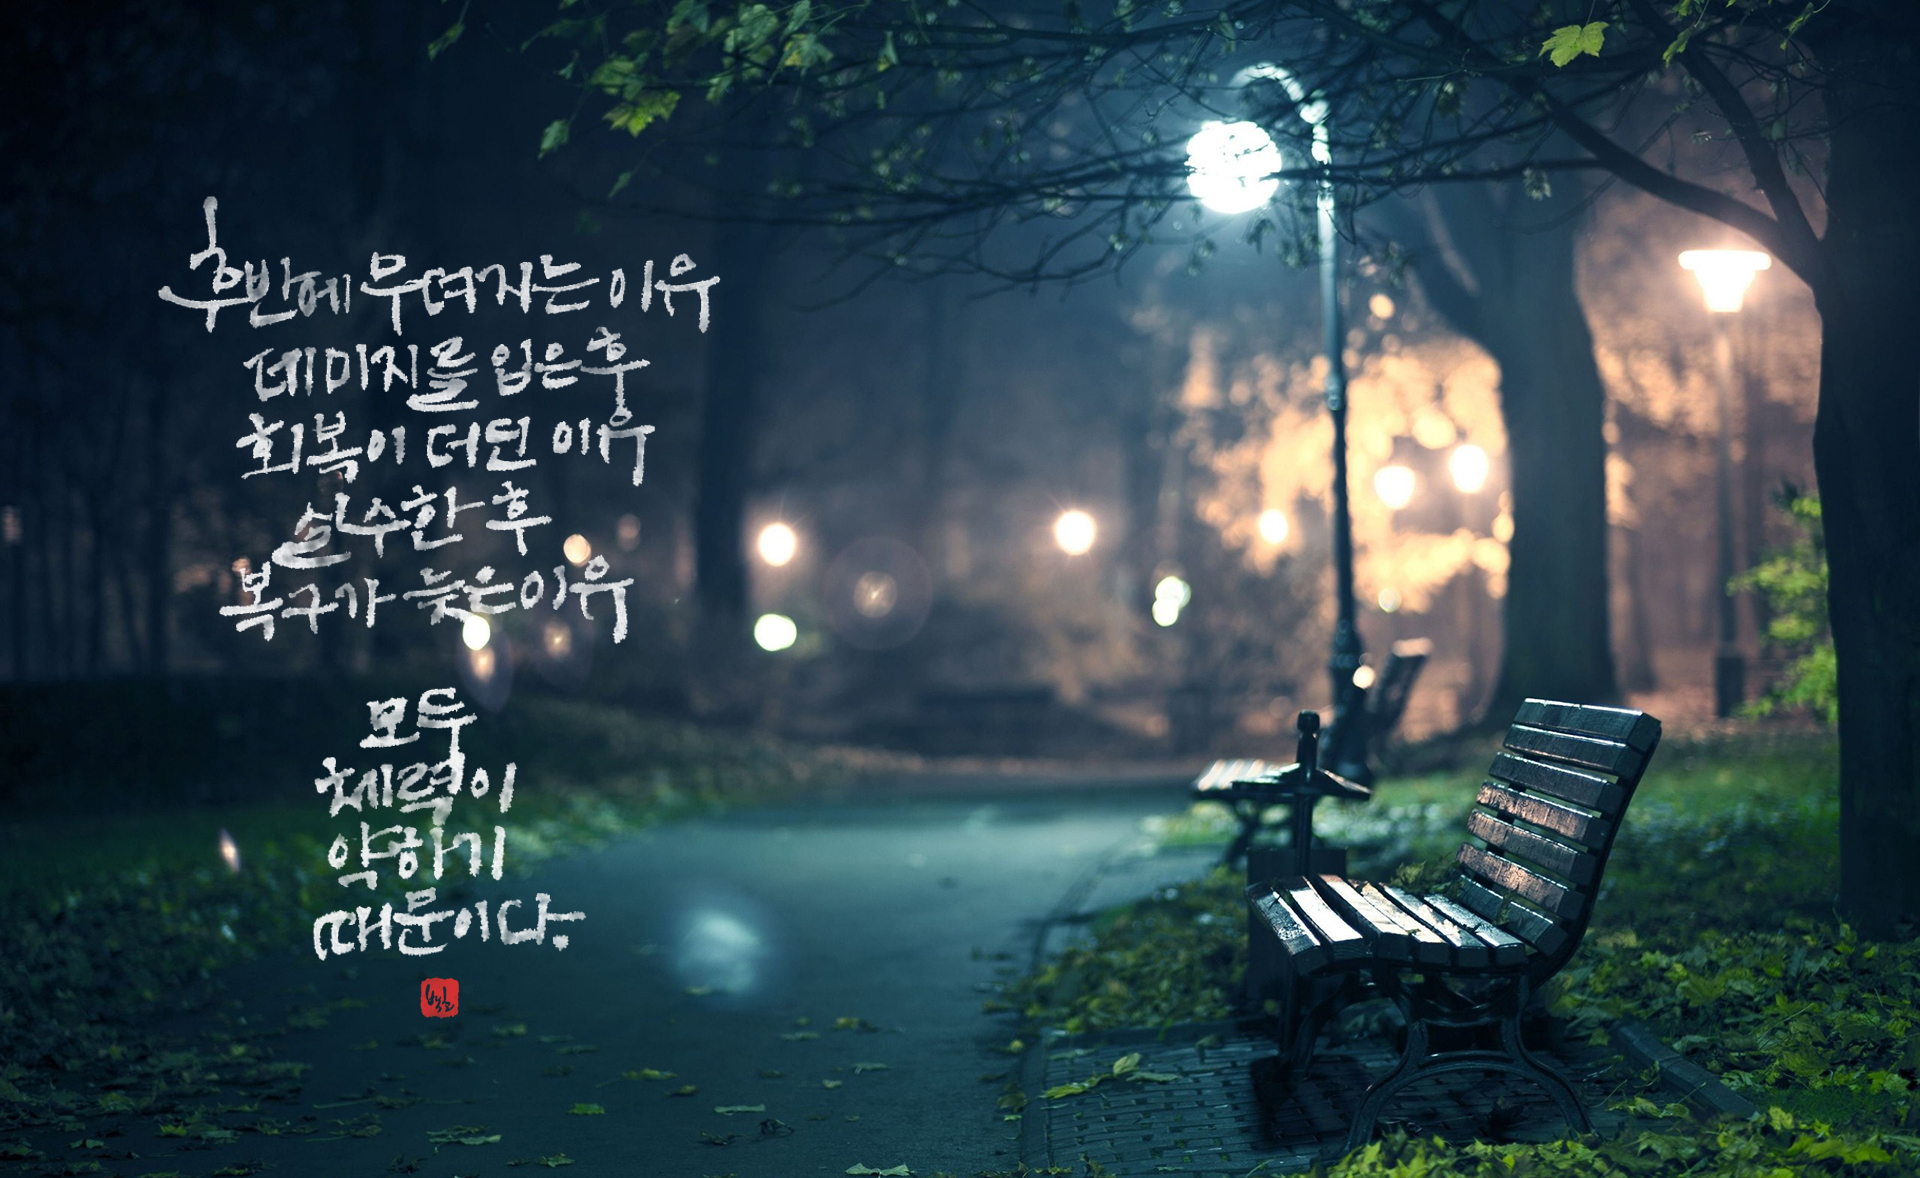 후반에 무너지는 이유
데미지를 입은 후
회복이 더딘 이유
실수한 후
복구가 늦은 이유
모두
체력이
약하기
때문이다.